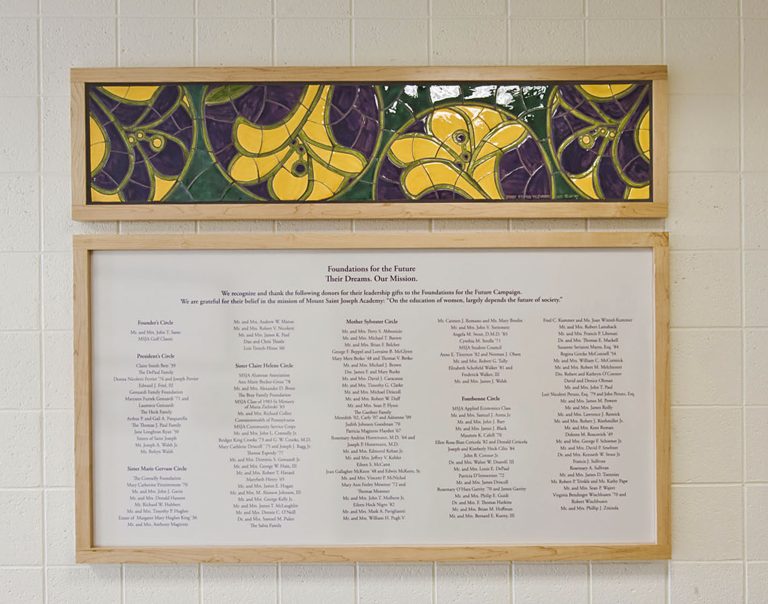 Foundations for the Future
Their Dreams. Our Mission.
We recognize and thank the following donors for their leadership gifts to the Foundations for the Future Campaign.
We are grateful for their belief in the mission of Mount Saint Joseph Academy: "On the education of women, largely depends the future of society."
Founder's Circle
Mr. and Mrs. John T.
MSJA Golf Classic
President's Circle
Claire Smith Betz '39
The DePaul Family
Donna Nicoletti Ferrier '76 and Joseph Ferrier
Edward J. Ford, III
Genuardi Family Foundation
Maureen Furtek Genuardi '71 and
Laurence Genuardi
The Heik Family
Arthur P. and Gail A. Pasquarella
The Thomas J. Paul Family
Jane Loughran Ryan '50
Sisters of Saint Joseph
Mr. Joseph A. Walsh Jr.
Ms. Robyn Walsh
Sister Marie Gervase Circle
The Connelly Foundation
Mary Catherine '76
Mr. and Mrs. John J. Gavin
Mr. and Mrs. Donald Hansen
Mr. Richard W. Hubbert
Mr. and Mrs. Timothy P. Hughes
Estate of Margaret Mary Hughes King '36
Mr. and Mrs. Anthony Maginnis
Mr. and Mrs. Andrew W. Mason
Mr. and Mrs. Robert V. Nicoletti
Mr. and Mrs. James K. Paul
Dan and Chris Thistle
Lori Tetich-Hitme '88
Sister Claire Helene Circle
MSJA Alumnae Association
Ann Marie Becker-Greis '78
Mr. and Mrs. Alexander D. Bono
The Bray Family Foundation
MSJA Class of 1983-In Memory
of Maria Zielinski '83
Mr. and Mrs. Richard Collier
Commonwealth of Pennsylvania
MSJA Community Service Corps
Mr. and Mrs. John L. Connolly Jr.
Bridget King Crooke '73 and G. W. Crooke, M.D.
Mary Cathleene Driscoll '75 and Joseph J. Rigg Jr.
Sharon Esposito '77
Mr. and Mrs. Dominic S. Genuardi Jr.
Mr. and Mrs. George W. Hain, III
Mr. and Mrs. Robert T. Havard
Marybeth Henry '85
Mr. and Mrs. James E. Hogan
Mr. and Mrs. M. Shawn Johnson, III
Mr. and Mrs. George Kelly Jr.
Mr. and Mrs. James T. McLaughlin
Mr. and Mrs. Dennis C. O'Neill
Dr. and Mrs. Samuel M. Puleo
The Salvia Family
Mother Sylvester Circle
Mr. and Mrs. Perry S. Abbonizio
Mr. and Mrs. Michael T. Barron
Mr. and Mrs. Brian F. Belcher
George F. Beppel and Lorraine B. McGlynn
Mary Mere Berko '68 and Thomas V. Berko
Mr. and Mrs. Michael J. Brown
Drs. James F. and Mary Burke
Mr. and Mrs. David J. Caracausa
Mr. and Mrs. Timothy G. Clarke
Mr. and Mrs. Michael Driscoll
Mr. and Mrs. Robert W. Duff
Mr. and Mrs. Sean P. Flynn
The Gardner Family
Meredith '82, Carly '07 and Adrienne '09
Judith Johnson Goodman '70
Patricia Maginnis Harden '67
Rosemary Andries Horstmann, M.D. '64 and
Joseph P. Horstmann, M.D.
Mr. and Mrs. Edmond Kelner Jr.
Mr. and Mrs. Jeffrey V. Kohler
Eileen S. McCann
Joan Gallagher McKeon '48 and Edwin McKeon, Sr.
Mr. and Mrs. Vincent P. McNichol
Mary Ann Feeley Messner '72 and
Thomas Messner
Mr. and Mrs. John T. Mulhern Jr.
Eileen Heck Nigro '82
Mr. and Mrs. Mark A. Parsghanini
Mr. and Mrs. William H. Pugh V
Mr. Carmen J. Romano and Ms. Mary Bredin
Mr. and Mrs. John S. Siemonetz
Angela M. Sroat, D.M.D. '85
Cynthia M. Strolli '71
MSJA Student Council
Anne E. Tierynyr '82 and Norman J. Olsen
Mr. and Mrs. Robert G. Tully
Elizabeth Schofield Walker '81 and
Frederick Walker, III
Mr. and Mrs. James J. Walsh
Fontbonne Circle
MSJA Applied Economics Class
Mr. and Mrs. Samuel J. Arena Jr.
Mr. and Mrs. John J. Bary
Mr. and Mrs. James J. Black
Maureen K. Cahill '70
Ellen Ross-Bias Cericola '82 and Donald Cericola
Joseph and Kimberly Hoak Cifra '84
John B. Connor Jr.
Dr. and Mrs. Walter W. Dearolf, III
Mr. and Mrs. Louis E. DePaul
Patricia D'Intronzino '72
Mr. and Mrs. James Driscoll
Rosemary O'Hara Garrity '70 and James Garrity
Mr. and Mrs. Philip E. Guidt
Dr. and Mrs. F. Thomas Harkins
Mr. and Mrs. Brian M. Hoffman
Mr. and Mrs. Bernard E. Kueny, III
Fred C. Kummer and Ms. Joan Wenzel-Kummer
Mr. and Mrs. Robert Lansback
Mr. and Mrs. Francis P. Liberace
Dr. and Mrs. Thomas E. Mackell
Suzanne Savarese Marns, Esq. '84
Regina Gericke McConnell '56
Mr. and Mrs. William C. McCormick
Mr. and Mrs. Robert M. Melchionni
Drs. Robert and Kathryn O'Connor
David and Denise Oltman
Mr. and Mrs. John T. Paul
Lori Nicoletti Perozo, Esq. '79 and John Perozo, Esq.
Mr. and Mrs. James M. Powers
Mr. and Mrs. James Reilly
Mr. and Mrs. Lawrence J. Rennick
Mr. and Mrs. Robert J. Riethmiller Jr.
Mr. and Mrs. Kent Roman
Dolores M. Roscovich '49
Mr. and Mrs. George F. Schommer Jr.
Mr. and Mrs. David F. Smeltzer
Dr. and Mrs. Kenneth W. Sroat Jr.
Francis J. Sullivan
Rosemary A. Sullivan
Mr. and Mrs. James D. Tierstley
Mr. Robert P. Trinkle and Ms. Kathy Pape
Mr. and Mrs. Sean P. Wajert
Virginia Bensinger Wiechmann '70 and
Robert Wiechmann
Mr. and Mrs. Phillip J. Zoniola